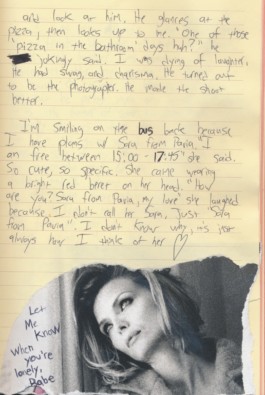 and look at him. He glances at the
pizza, then looks up to me. "One of those
"pizza in the bathroom" days huh?" he
jokingly said. I was dying of laughter.
He had swag, and charisma. He turned out
to be the photographer. He made the shoot
better.
I'm smiling on the bus back because
I have plans w/ Sara from Paria. "I
am free between 15:00 - 17:45" she said.
So cute, so specific. She came wearing
a bright red beret on her head. "How
are you? Sara from Paria, my love she laughed
because I don't call her Sara. Just "Sara
from Paria". I don't know why, it's just
always how I think of her ♡
Let
Me
Know
When
you're
lonely,
Babe